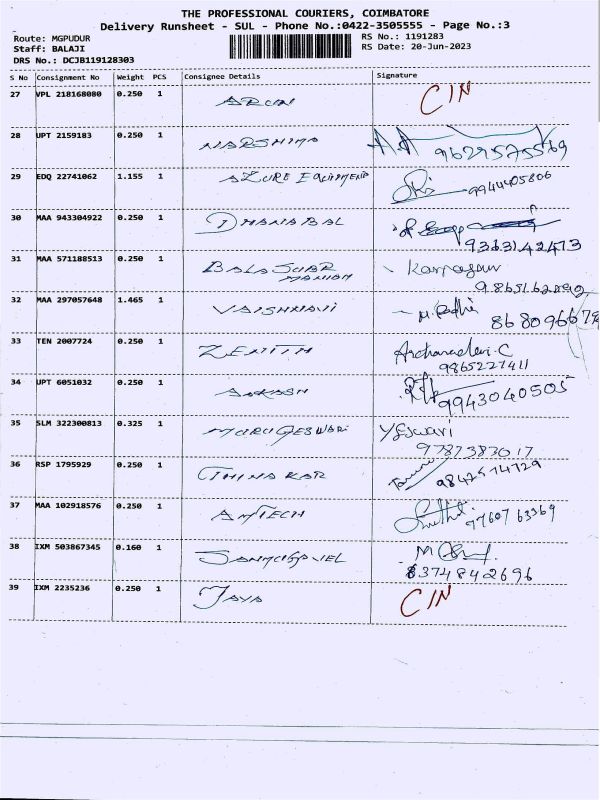 THE PROFESSIONAL COURIERS, COIMBATORE
Delivery Runsheet - SUL - Phone No.:0422-3505555 - Page No.:3
Route: MGPUDUR RS No.: 1191283
Staff: BALAJI RS Date: 20-Jun-2023
DRS No.: DCJB119128303
S No Consignment No Weight PCS Consignee Details Signature
27 VPL 218168080 0.250 1 ARUN CIN
28 UPT 2159183 0.250 1 NARSHIMA 9629575569
29 EDQ 22741062 1.155 1 AZURE EQUIPMEND 9944405806
30 MAA 943304922 0.250 1 DHANABAL
9363142473
31 MAA 571188513 0.250 1 BALASUBR
MANIAM
32 MAA 297057648 1.465 1 VAISHNAVI
33 TEN 2007724 0.250 1 ZENITH Archanadevi.C
9865227411
34 UPT 6051032 0.250 1 AAKASH 9943040505
35 SLM 322300813 0.325 1 MURUGESWARI Y Eswari
9787383017
36 RSP 1795929 0.250 1 THINAKAR 9842574729
37 MAA 102918576 0.250 1 AMTECH 7760763369
38 IXM 503867345 0.160 1 SANMUGAVEL
8374842696
39 IXM 2235236 0.250 1 JAYA CIN